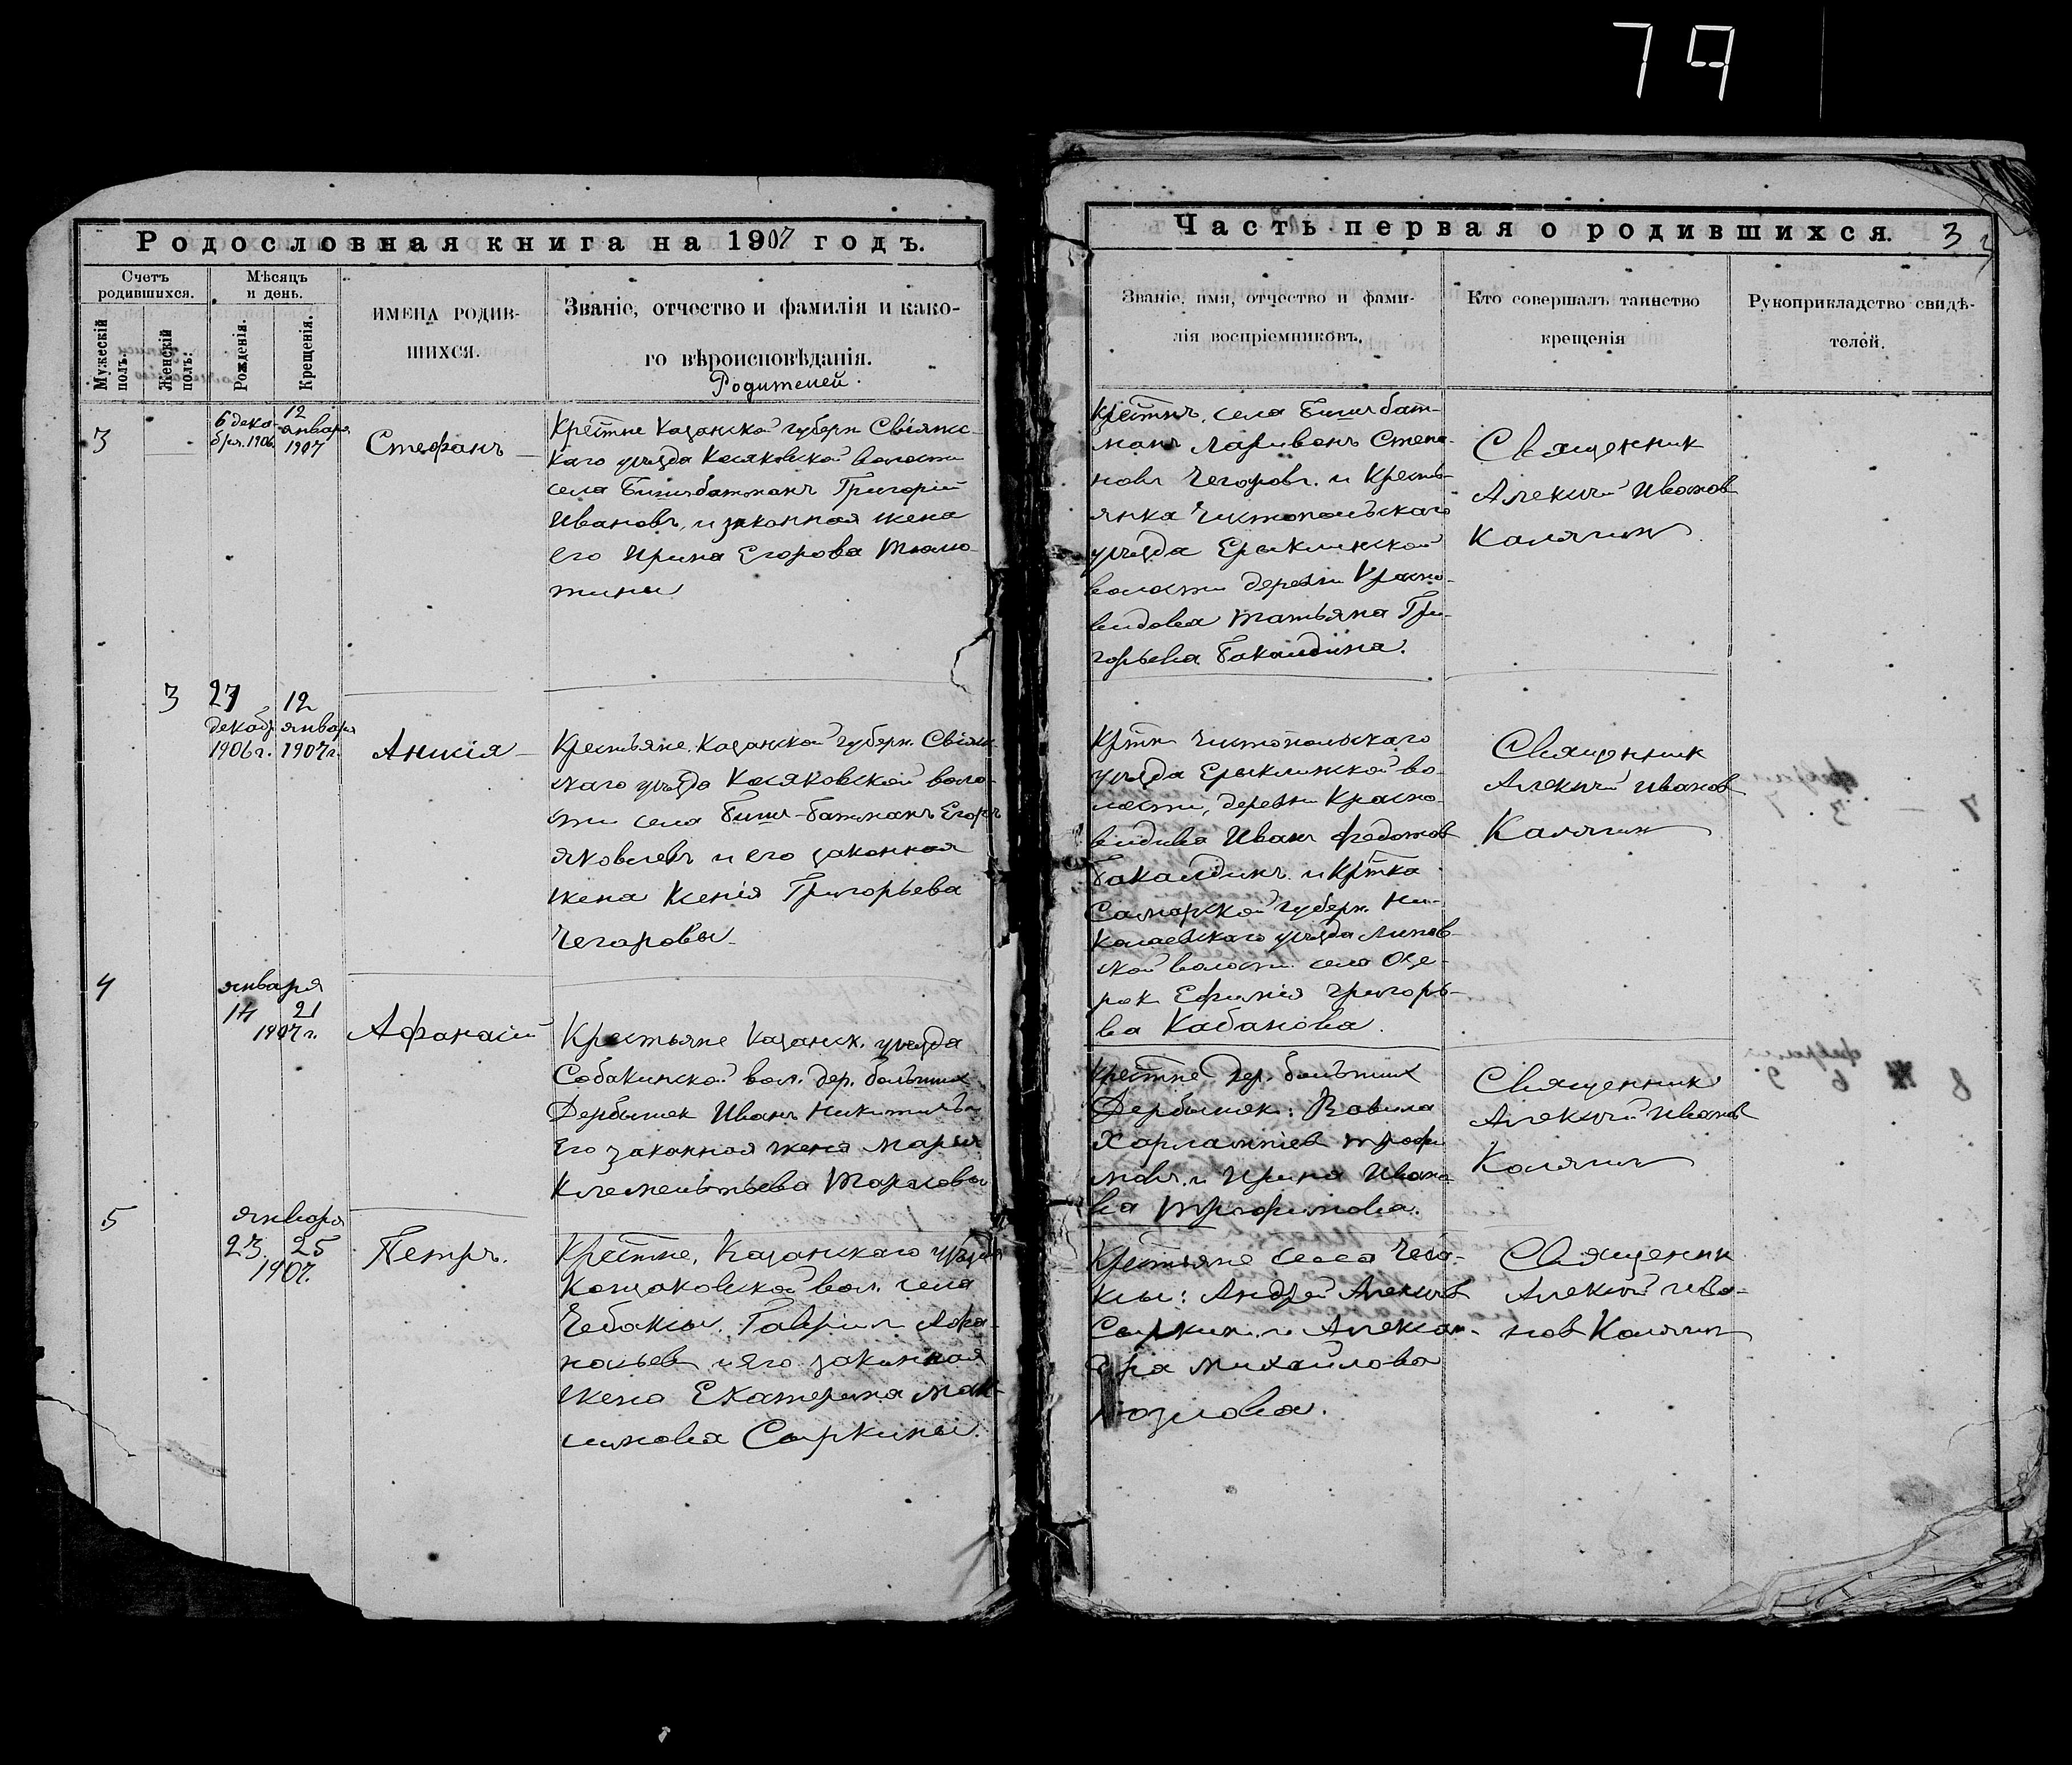 79
Родословная книга на 1907 годъ.
Счетъ родившихся.
Мужескій полъ.
Женскій полъ.
Мѣсяцъ и день.
Рожденія.
Крещенія.
ИМЕНА РОДИВ-
ШИХСЯ.
Званіе, отчество и фамилія и како-
го вѣроисповѣданія.
Родителей.
3
6 дека-
бря. 1906.
12
января
1907
Стефанъ
Крестне Казанской губерн Свіяжс-
каго уѣзда Косяковской волости
села Бишъбатманъ Григорій
Ивановъ, и законная жена
его Ирина Егорова Тюлю-
тины
3
27
декабр
1906 г.
12
января
1907 г.
Анисія
Крестьяне Казанской губерн. Свіяж-
скаго уѣзда Косяковской воло-
сти села Бишъ-Батманъ Егоръ
Яковлевъ и его законная
жена Ксенія Григорьева
Чегаровы
4
января
14 21
1907 г.
Афанасій
Крестьяне Казанск. уѣзда
Собакинской вол. дер. большихъ
Дербышек Иванъ Никитинъ
Его законная жена Марья
Клементьева Тарасовы
5
января
23. 25
1907.
Петръ.
Крестне, Казанскаго уѣзда
Кощаковской вол. села
Чебаксы. Гавріил Афа-
насьев и яго законная
жена Екатерина Мак-
симова Сыркины.
Часть первая о родившихся. 3
Званіе, имя, отчество и фами-
лія воспріемниковъ.
Кто совершалъ таинство
крещенія
Рукоприкладство свидѣ-
телей.
Крестнъ, села Бишъбат-
манъ Ларивонъ Степа-
новъ Чегоровъ. и Кресть-
янка Чистопольскаго
уѣзда Ерыклинской
волости деревни Красно-
видова Татьяна Гри-
горьева Бакалдина.
Священник
Алексѣй Иванов
Калягин
Крстн Чистопольскаго
уѣзда Ерыклинской во-
лости, деревни Красно-
видова Иванъ Федотов
Бакалдинъ. и Крстка
Самарской губерн. Ни-
колаевскаго уѣзда Липов-
ской волости села Озе-
рок Ефимія Григорь-
ва Кабанова.
Священник
Алексѣй Иванов
Калягин
Крестне дер. большихъ
Дербышек: Вавила
Харлампіев Трофи
мовъ. и Ирина Ивано
ва Трофимова.
Священник
Алексѣй Иванов
Калягин
Крестьяне села Чеба-
ксы: Андрей Алексѣев
Сыркин. и Алексан-
дра Михайлова
Козлова.
Священик
Алексѣй Ива-
нов Калягин